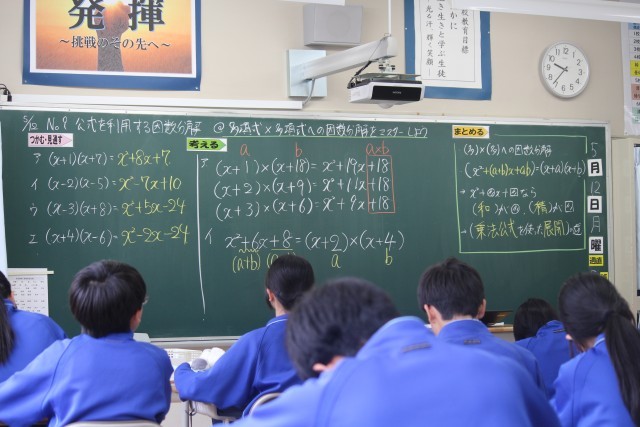 発揮
～挑戦のその先へ～
校教育目標
かに
き生きと学ぶ生徒
光る汗 輝く笑顔
5/12 No.8 公式を利用する因数分解 @ 多項式×多項式への因数分解をマスターしよう
つかむ・見通す
ア (x+1)(x+7)= x²+8x+7
イ (x-2)(x-5)= x²-7x+10
ウ (x-3)(x+8)= x²+5x-24
エ (x+4)(x-6)= x²-2x-24
考える
a b a×b
ア (x+1)×(x+18)= x²+19x+18
(x+2)×(x+9)= x²+11x+18
(x+3)×(x+6)= x²+9x+18
イ x²+6x+8=(x+2)×(x+4)
(a+b) a b
まとめる
(多)×(多)への因数分解
(x²+(a+b)x+ab)=(x+a)(x+b)
(和)が (積)が
→(乗法公式を使った展開)の逆
5
月
12
日
月
曜
週直